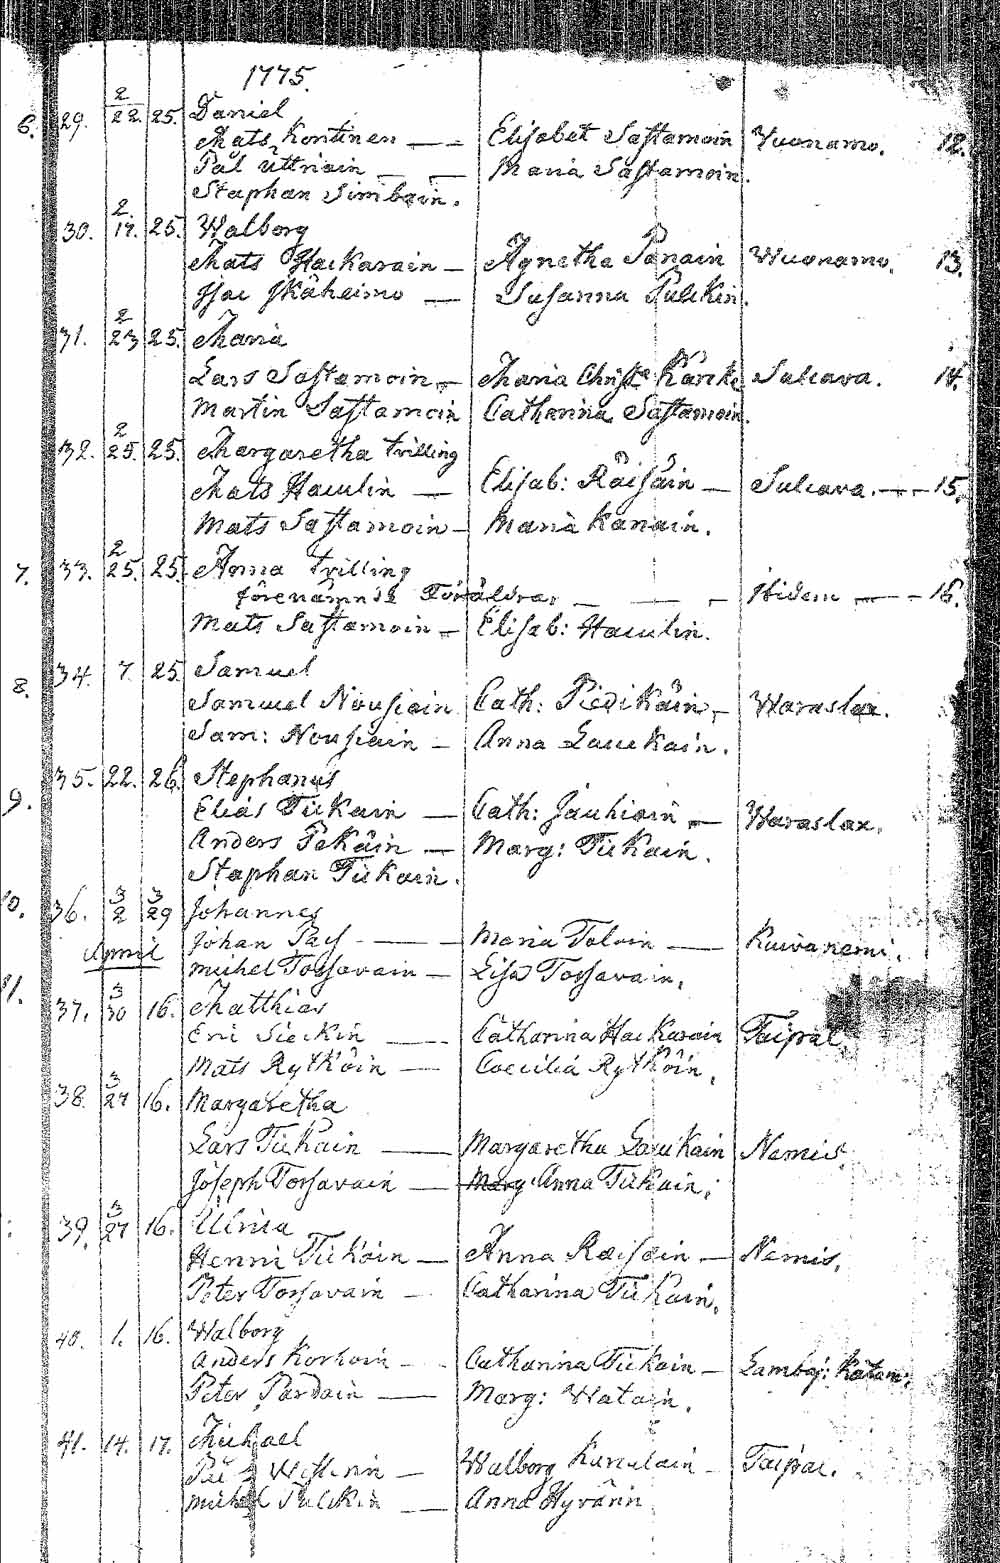 1775.
6. 29. 2/22. 25. Daniel
Mats Kontinen — Elisabet Sastamoin Vuonamo. 12.
Pål Uttriain — Maria Sastamoin.
Staphan Simbain.
30. 2/17. 25. Walborg
Mats Haukarain — Agnetha Pånain Wuonamo. 13.
Isac Ikäheimo — Susanna Pulckin.
31. 2/23 25. Maria
Lars Sastamoin — Maria Christ. Kärcke Sulcava. 14.
Martin Sastamoin Catharina Sastamoin.
32. 2/25. 25. Margaretha trilling
Mats Hauulin — Elisab: Räisäin — Sulcava. — 15.
Mats Sastamoin — Maria Kanain.
7. 33. 2/25. 25. Anna trilling
förenämnde Föräldrar — Ibidem — 16.
Mats Sastamoin — Elisab: Hauulin.
8. 34. 7. 25. Samuel
Samuel Nousiain Cath: Piedikäin — Waraslax.
Sam: Nousiain — Anna Laukain.
9. 35. 22. 26. Stephanus
Elias Tiikain — Cath: Jauhiain — Waraslax.
Anders Pekäin — Marg: Tiikain.
Staphan Tiikain.
10. 36. 3/2 3/29 Johannes
April Johan Pasf — Maria Tolvin — Kuivanemi.
Michel Torsavain — Lisa Torsavain.
11. 37. 3/30 16. Matthias
Eric Sieckin — Catharina Haukarain Taipal.
Mats Rytköin — Caecilia Rytköin.
38. 3/27 16. Margaretha
Lars Tiikain — Margaretha Laukain Nemis.
Joseph Torsavain — Marg: Anna Tiikain.
39. 3/27 16. Ulrica
Henric Tiikain — Anna Raisain — Nemis.
Peter Torsavain — Catharina Tiikain.
40. 1. 16. Walborg
Anders Korhoin — Catharina Tiikain — Lambej: Kätam:
Peter Pardain — Marg: Watain.
41. 14. 17. Michael
Westerin — Walborg Kurculain — Taipal.
Michel Pulckin — Anna Hyvärin